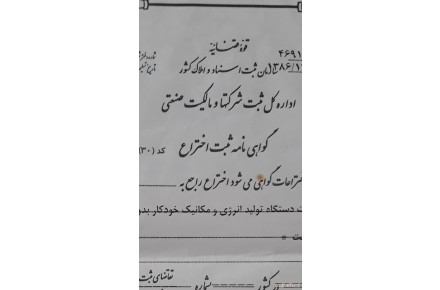 قوه قضائیه
۴۶۹۱
سازمان ثبت اسناد و املاک کشور
۱۳۸۶/۱
اداره کل ثبت شرکتها و مالکیت صنعتی
گواهی نامه ثبت اختراع
کد (۳۰)
گواهی می شود اختراع راجع به
دستگاه تولید انرژی و مکانیک خودکار بدو
تقاضای ثبت
در کشور
بشماره